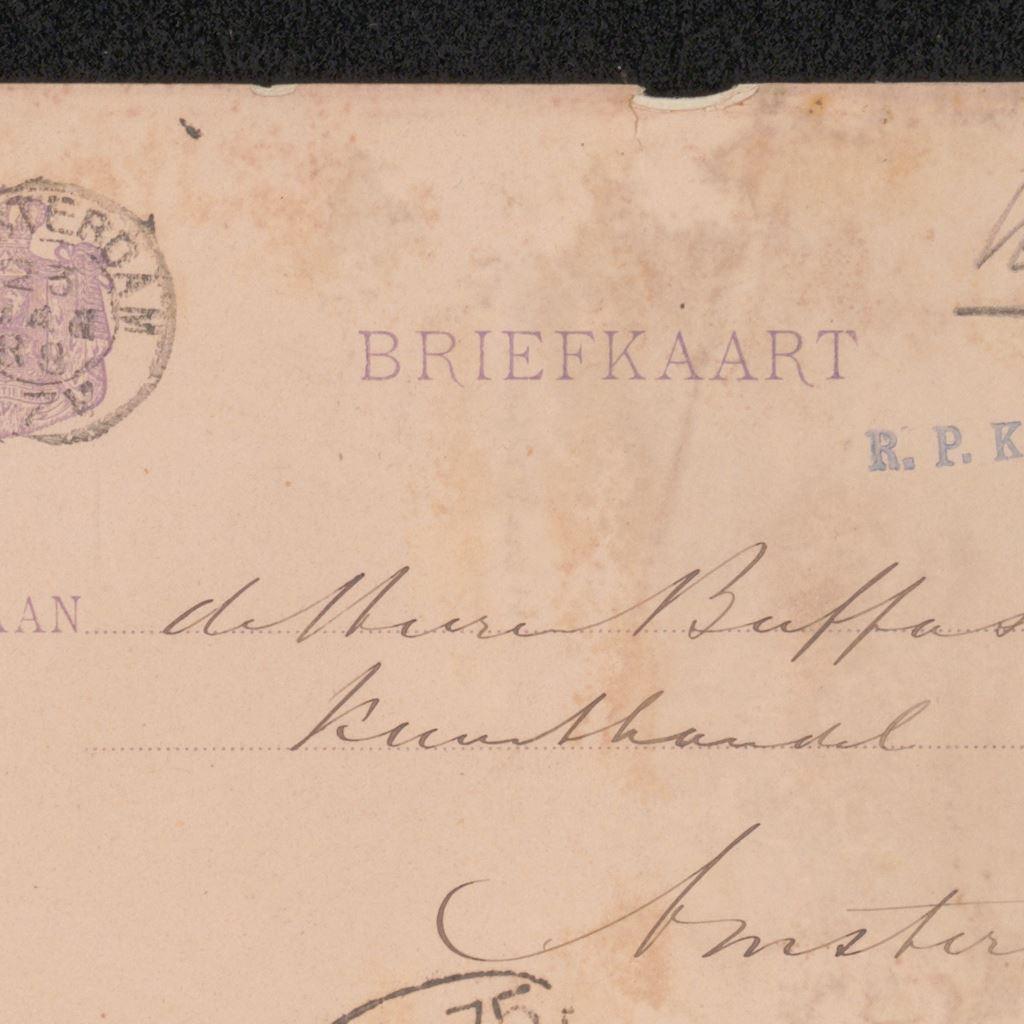 STERDAM
BRIEFKAART
R. P. K
AAN de Heeren Buffa s
Kunsthandel
Amster
75